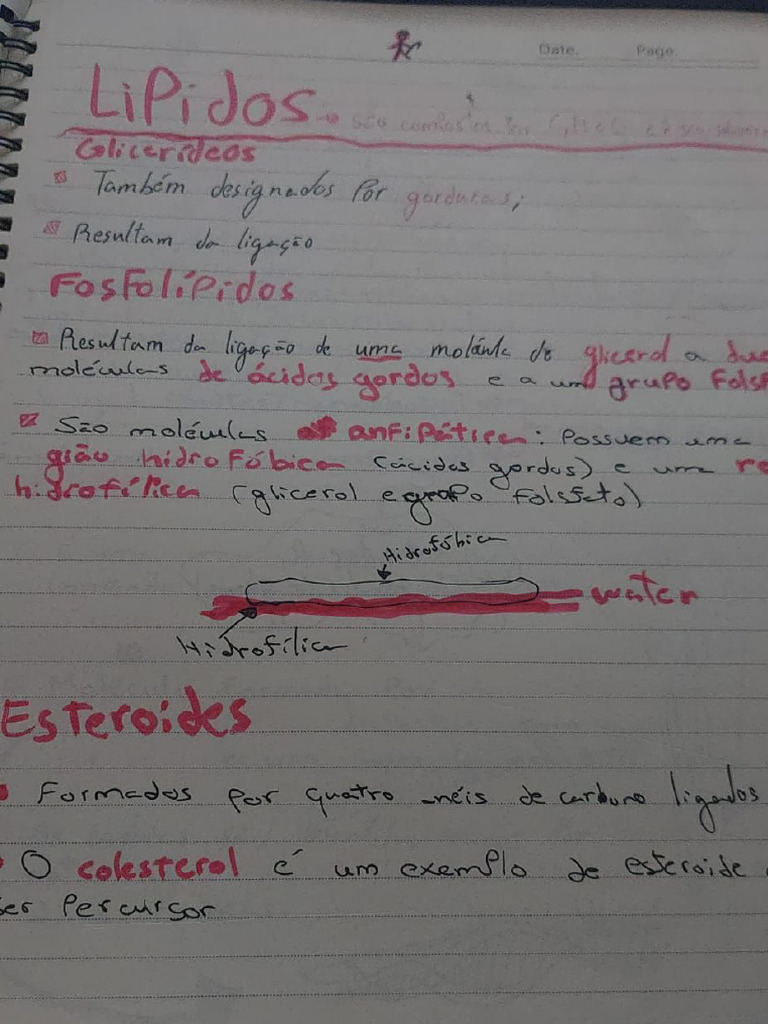 Date. Page.
LiPidos são
Glicerídeos
Também designados Por gorduras;
Resultam da ligação
Fosfolípidos
Resultam da ligação de uma molécula de glicerol a
moléculas de ácidos gordos e a um grupo
São moléculas anfipática: Possuem uma
gião hidrofóbica (ácidos gordos) e uma re
hidrofílica (glicerol e grupo
Hidrofóbica
water
Hidrofílica
Esteroides
Formados por quatro de carbono ligados
O colesterol é um exemplo de esteroide
ser Percursor